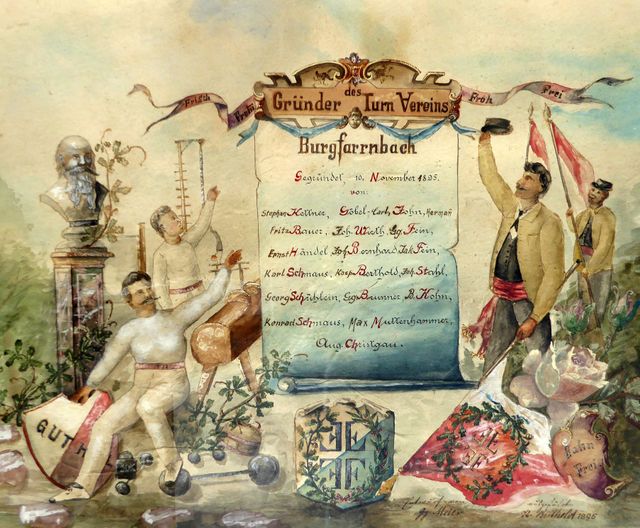 Frisch
Fromm
des
Gründer Turn Vereins
Froh
Frei
Burgfarrnbach
Gegründet, 10. November 1895.
von:
Stephan Kellner, Göbel Carl, John, Herman
Fritz Bauer, Joh. Wirth, Gg. Fein,
Ernst Händel Joh. Bernhard, Jak. Fein,
Karl Schmaus, Kasp. Berthold, Joh. Stahl,
Georg Schühlein, Gg. Brunner, B. Kohn,
Konrad Schmaus, Max Muttenhammer,
Aug. Christgau.
GUTH
F F
F F
Bahn
Frei
Entworfen von
ausgeführt
1895